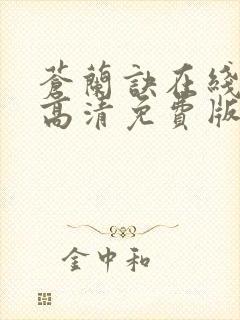 蒼蘭訣在綫
高清免費版
金中和